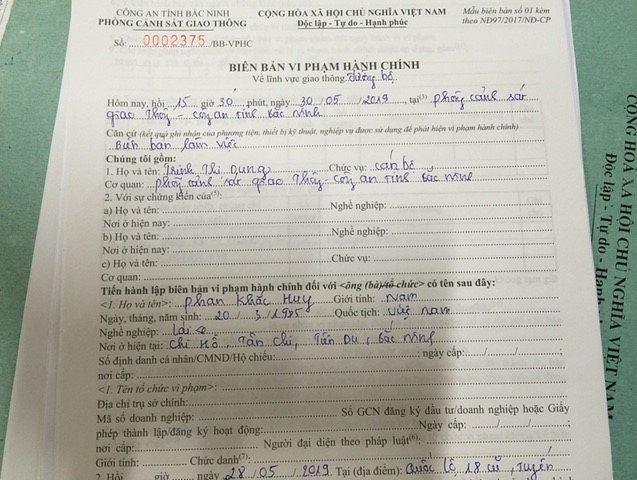 CÔNG AN TỈNH BẮC NINH
PHÒNG CẢNH SÁT GIAO THÔNG
Số: 0002375 /BB-VPHC
CỘNG HÒA XÃ HỘI CHỦ NGHĨA VIỆT NAM
Độc lập - Tự do - Hạnh phúc
Mẫu biên bản số 01 kèm
theo NĐ97/2017/NĐ-CP
BIÊN BẢN VI PHẠM HÀNH CHÍNH
Về lĩnh vực giao thông đường bộ
Hôm nay, hồi 15 giờ 30 phút, ngày 30 / 05 / 2019, tại(3) phòng cảnh sát
giao thông - công an tỉnh Bắc Ninh
Căn cứ (kết quả ghi nhận của phương tiện, thiết bị kỹ thuật, nghiệp vụ được sử dụng để phát hiện vi phạm hành chính)
Biên bản làm việc
Chúng tôi gồm:
1. Họ và tên: Trịnh Thị Dung Chức vụ: cán bộ
Cơ quan: phòng cảnh sát giao thông - công an tỉnh Bắc Ninh
2. Với sự chứng kiến của(5):
a) Họ và tên: Nghề nghiệp:
Nơi ở hiện nay:
b) Họ và tên: Nghề nghiệp:
Nơi ở hiện nay:
c) Họ và tên: Chức vụ:
Cơ quan:
Tiến hành lập biên bản vi phạm hành chính đối với <ông (bà)/tổ chức> có tên sau đây:
<1. Họ và tên>: Phan Khắc Huy Giới tính: Nam
Ngày, tháng, năm sinh: 20 / 3 / 1985 Quốc tịch: Việt Nam
Nghề nghiệp: Lái xe
Nơi ở hiện tại: Chi Hồ, Tân Chi, Tiên Du, Bắc Ninh
Số định danh cá nhân/CMND/Hộ chiếu: ; ngày cấp: / / ;
nơi cấp:
<1. Tên tổ chức vi phạm>:
Địa chỉ trụ sở chính:
Mã số doanh nghiệp:
Số GCN đăng ký đầu tư/doanh nghiệp hoặc Giấy
phép thành lập/đăng ký hoạt động: Ngày cấp: / / ;
nơi cấp: Người đại diện theo pháp luật(6):
Giới tính: Chức danh(7):
2. Hồi giờ ngày 28 / 05 / 2019 Tại (địa điểm): Quốc lộ 18 cũ, tuyến
CỘNG HÒA XÃ HỘI CHỦ NGHĨA VIỆT NAM
Độc lập - Tự do - Hạnh